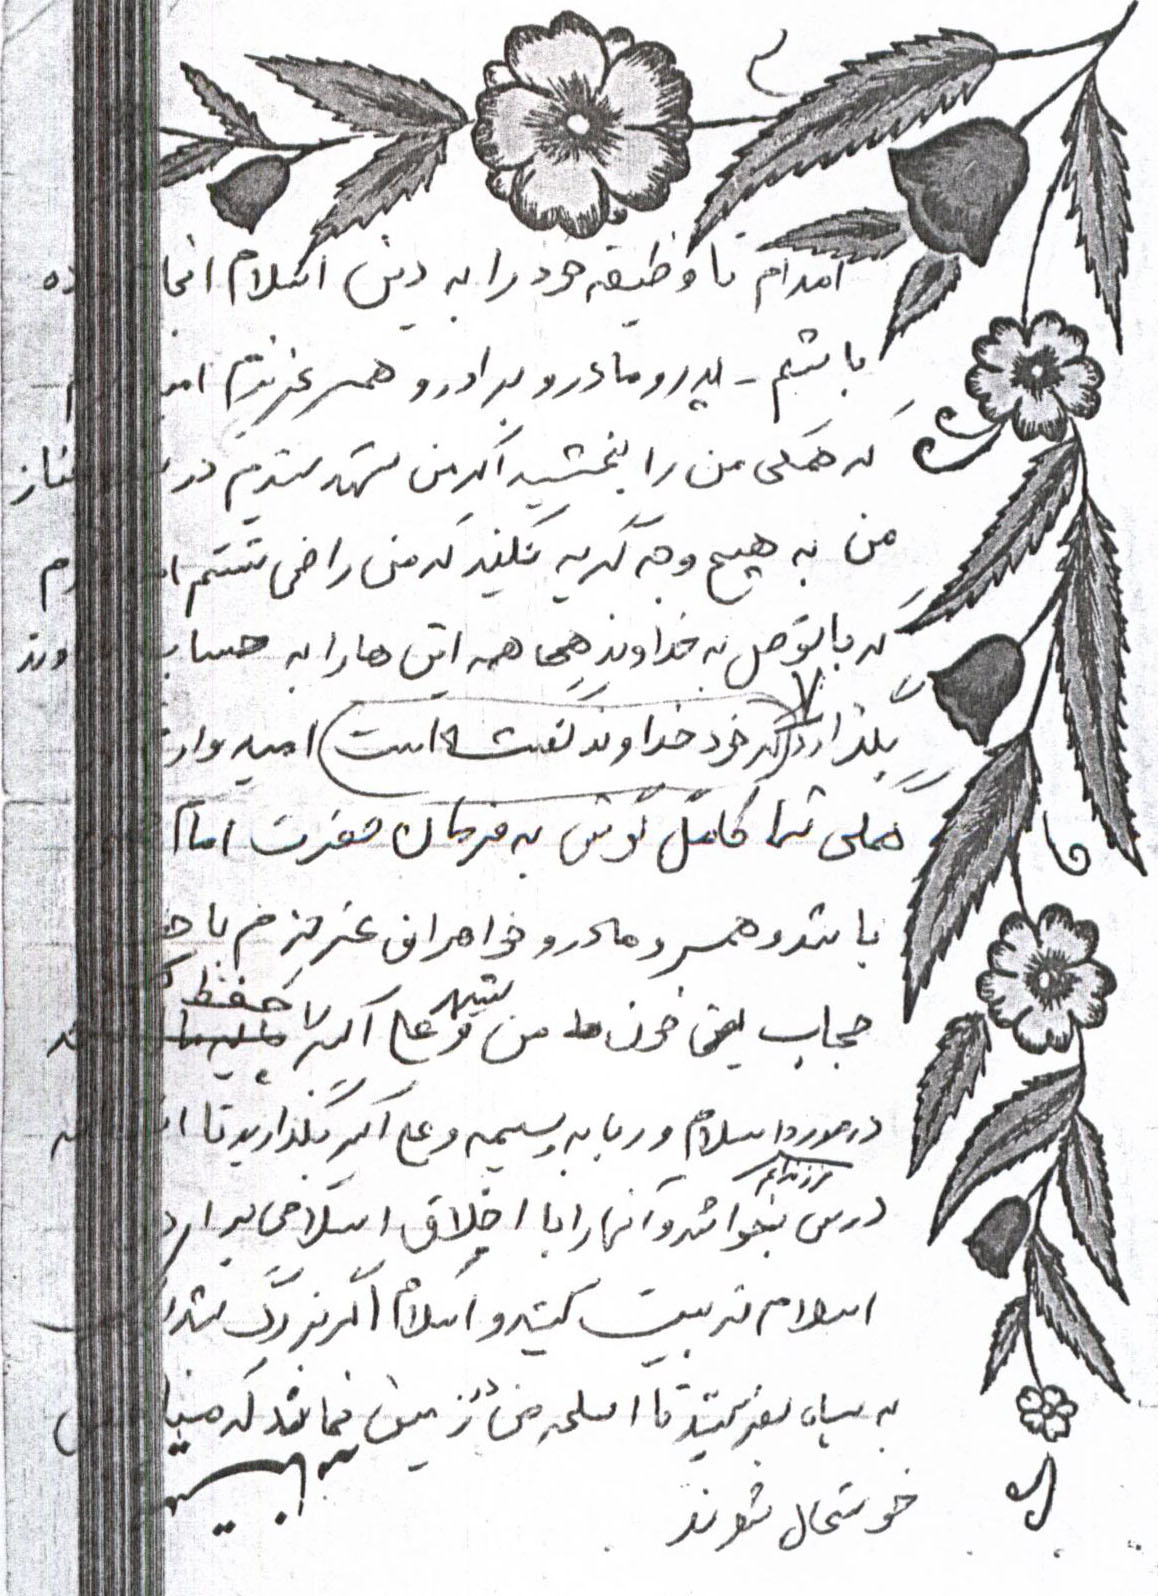 آمدام تا وظیفه خود را به دین اسلام انجا ده
باشم - پدر و مادر و برادر و همسر عزیزم امی م
که همگی من را ببخشید اگر من شهید شدم در
من به هیچ وجه گریه نکنید که من راضی نیستم ام رم
که با توصل به خداوند همه این ها را به حساب وند
بگذارد (که خود خداوند گفته است) امیدوار
همگی شما کاملا گوش به فرمان حضرت امام
باشد و همسر و مادر و خواهران عزیزم با
حجاب یعنی خون من و علی اکبر حفظ شد
در مورد اسلام و ربابه و سیمه و علی اکبر بگذارید تا
فرزندانم
درس بخوانند و آنها را با اخلاق اسلامی برا
اسلام تربیت کنید و اسلام اگر بزرگ شد
به سپاه بفرستید تا اسلحه من در زمین نماند که
خوشحال شوند